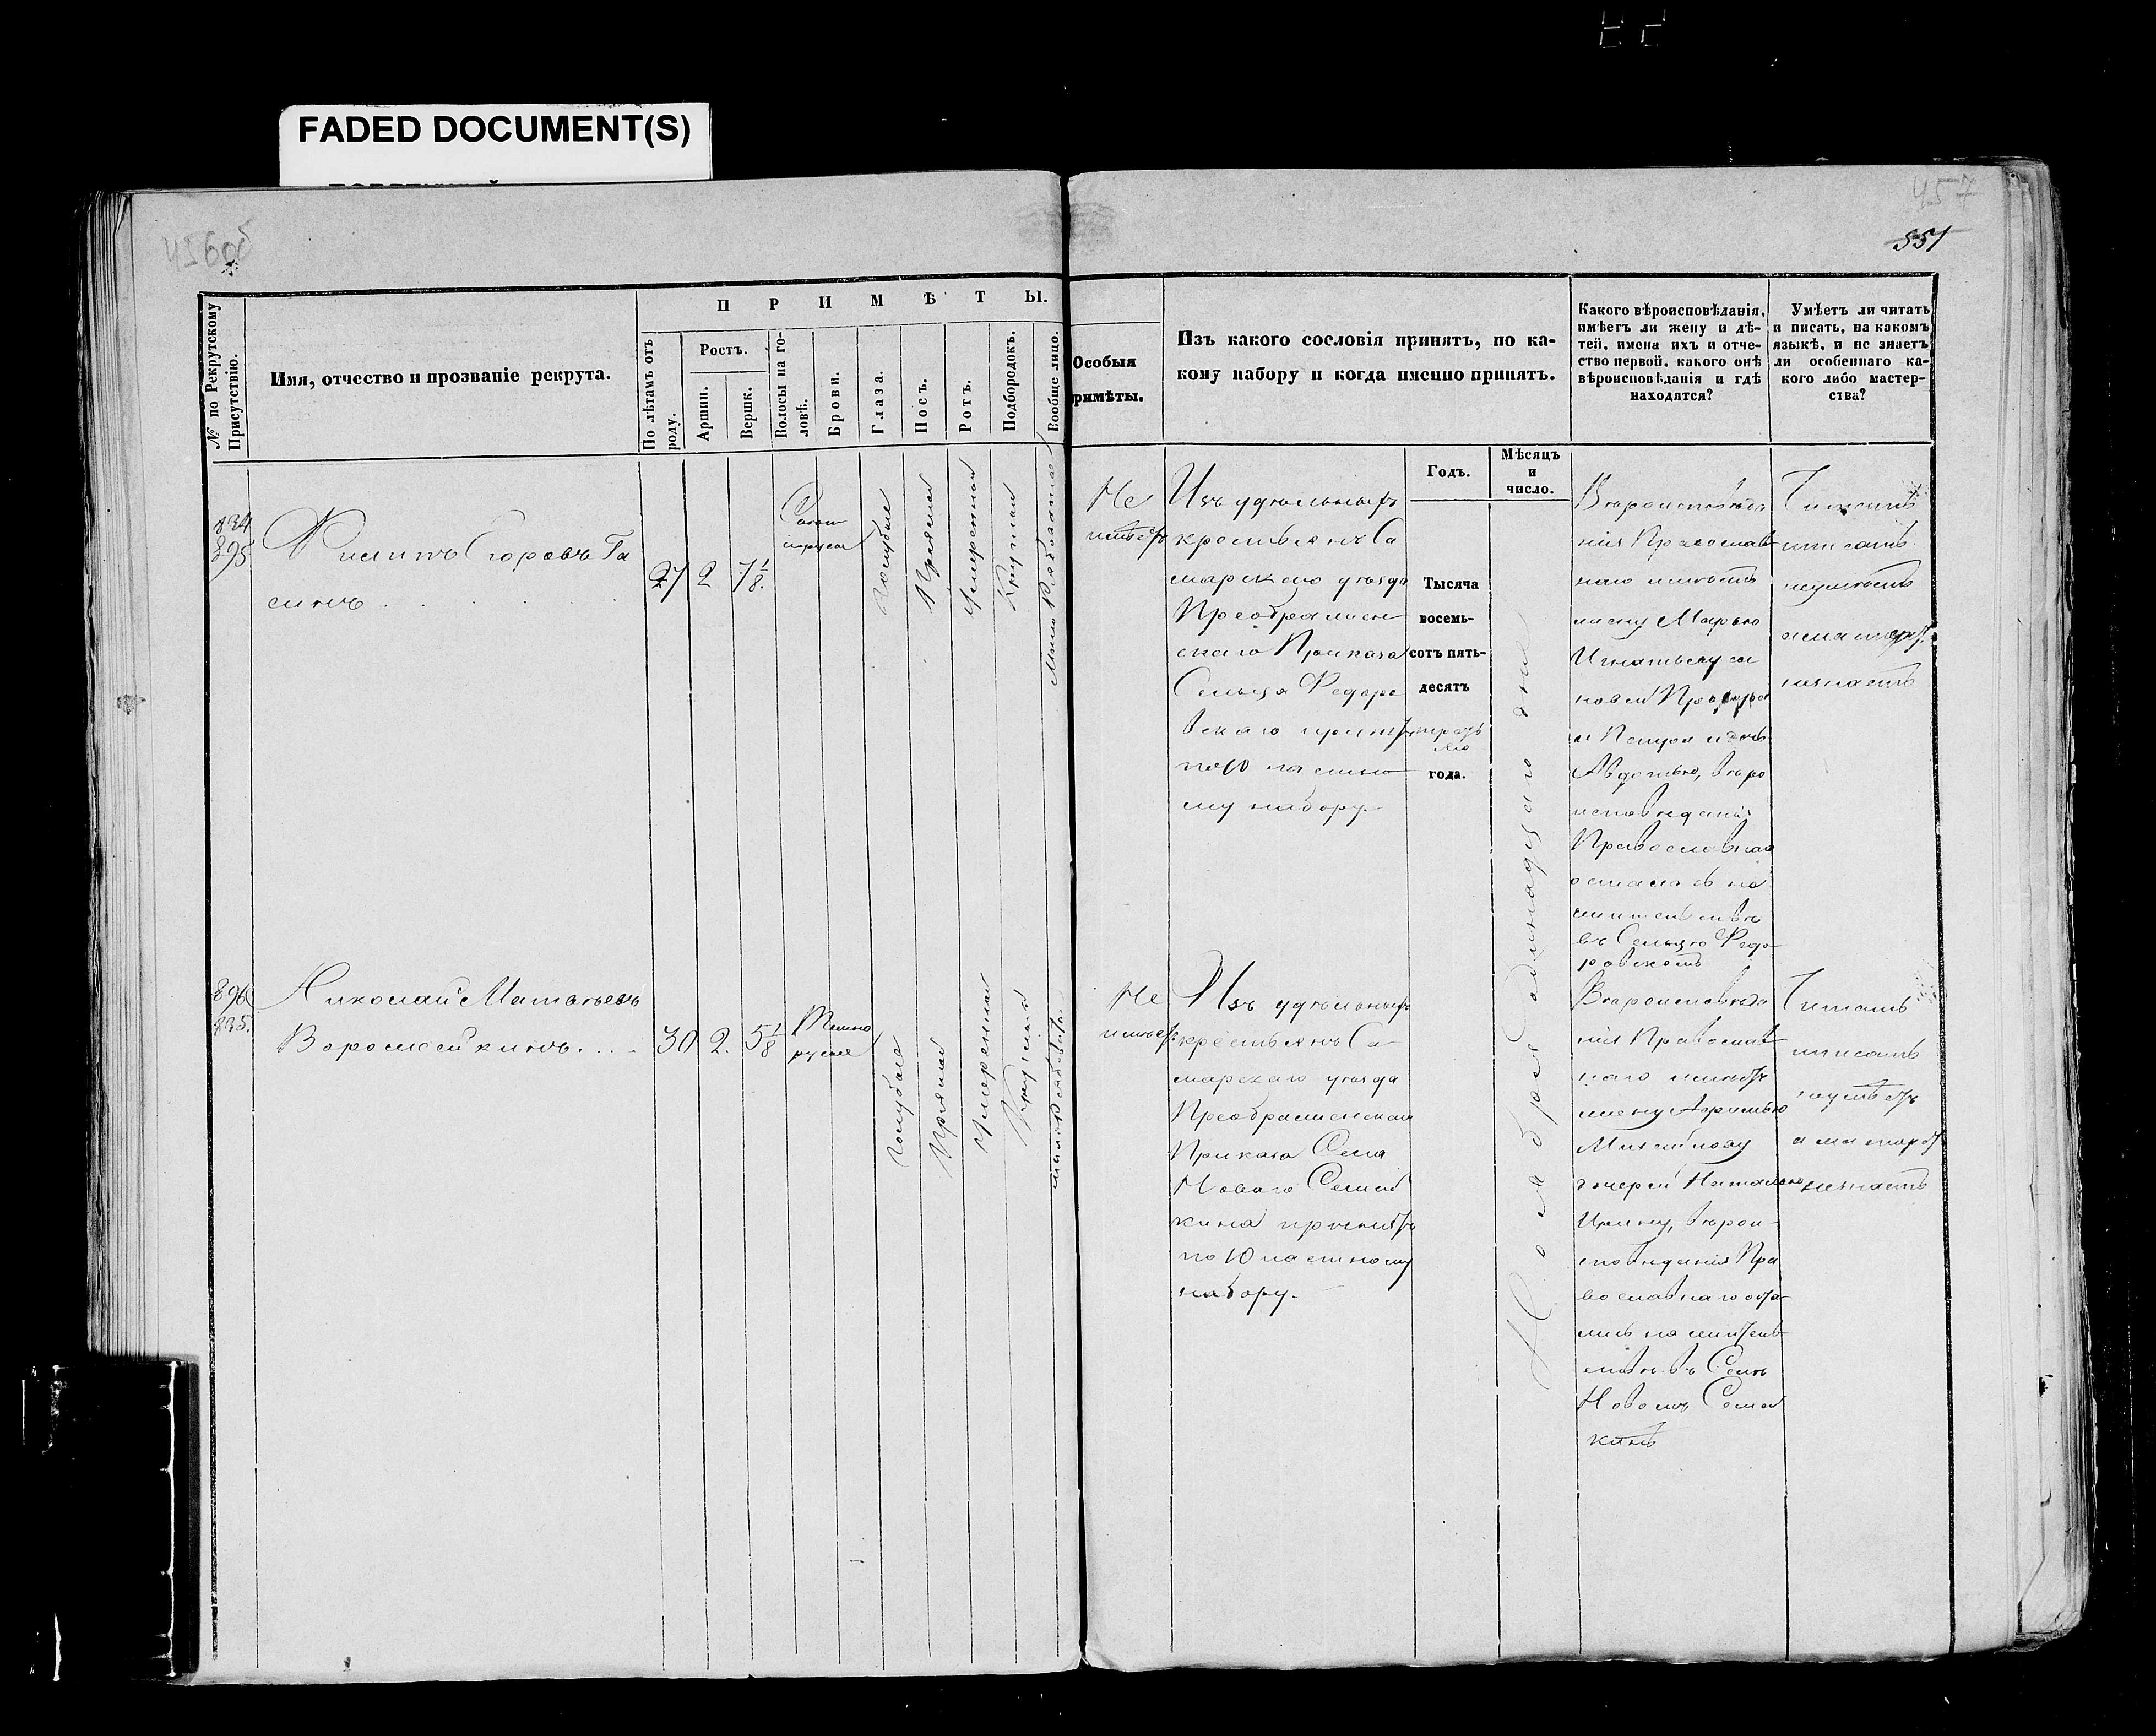 FADED DOCUMENT(S)
456об
457
551
№ по Рекрутскому Присутствію.
Имя, отчество и прозваніе рекрута.
ПРИМѢТЫ.
По лѣтамъ отъ роду.
Ростъ.
Аршин.
Вершк.
Волосы на го-
ловѣ.
Брови.
Глаза.
Носъ.
Ротъ.
Подбородокъ.
Вообще лицо.
Особыя
римѣты.
Изъ какого сословія принятъ, по ка-
кому набору и когда именно принятъ.
Какого вѣроисповѣданія,
имѣетъ ли жену и дѣ-
тей, имена ихъ и отче-
ство первой, какого онѣ
вѣроисповѣданія и гдѣ
находятся?
Умѣетъ ли читать
и писать, на какомъ
языкѣ, и не знаетъ
ли особеннаго ка-
кого либо мастер-
ства?
Годъ.
Мѣсяцъ
и
число.
834
895
Филипъ Егоровъ Га
синъ
27
2
7 1/8.
Голубые
Прямой
Умеренной
Круглой
Не
имѣетъ
Изъ удѣльныхъ
крестьянъ Са
марскаго уѣзда
Преображен
скаго Приказа
Сельца Федоро
вскаго принятъ
по 10 частно
му набору.
Тысяча
восемь-
сотъ пять-
десятъ
года.
Ноября одинадцатаго дня
Вѣроисповѣда
нія Православ
наго имѣетъ
жену Марью
Игнатьеву сы
новей
и Петра и дочь
Авдотью, вѣро
исповѣданія
Православнаго
остались на
жительствѣ
въ Сельцѣ Федо-
ровскомъ
Читать
писать
неумѣетъ
а мастерст.
незнаетъ
896
835.
Николай Матвѣевъ
Ворожейкинъ. . . .
30
2.
5 1/8
Темно
русые
Голубые
Прямой
Умеренной
Круглой
Не
имѣет
Изъ удѣльныхъ
крестьянъ Са-
марскаго уѣзда
Преображенскаго
Приказа Села
Новаго Семей
кина принятъ
по 10 частному
набору.
Вѣроисповѣда
нія Православ
наго имѣетъ
жену
дочерей Наталью
Ирину, вѣрои-
сповѣданія Пра
вославнаго оста-
лись на житель
ствѣ въ Селѣ
Новомъ Семей
кинѣ
Читать
писать
неумѣетъ
а мастерст
незнаетъ